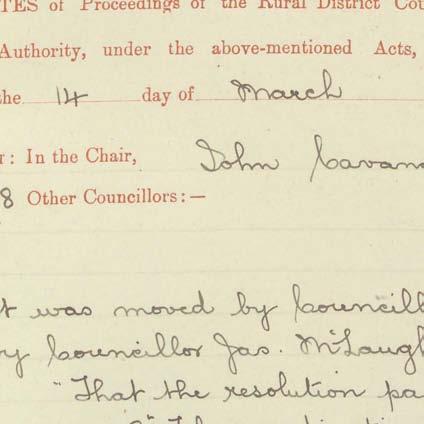 TES of Proceedings of the Rural District Cou
Authority, under the above-mentioned Acts,
the 14 day of March
r: In the Chair, John Cavana
8 Other Councillors:—
t was moved by Councill
y Councillor Jas. McLaugh
"That the resolution pa